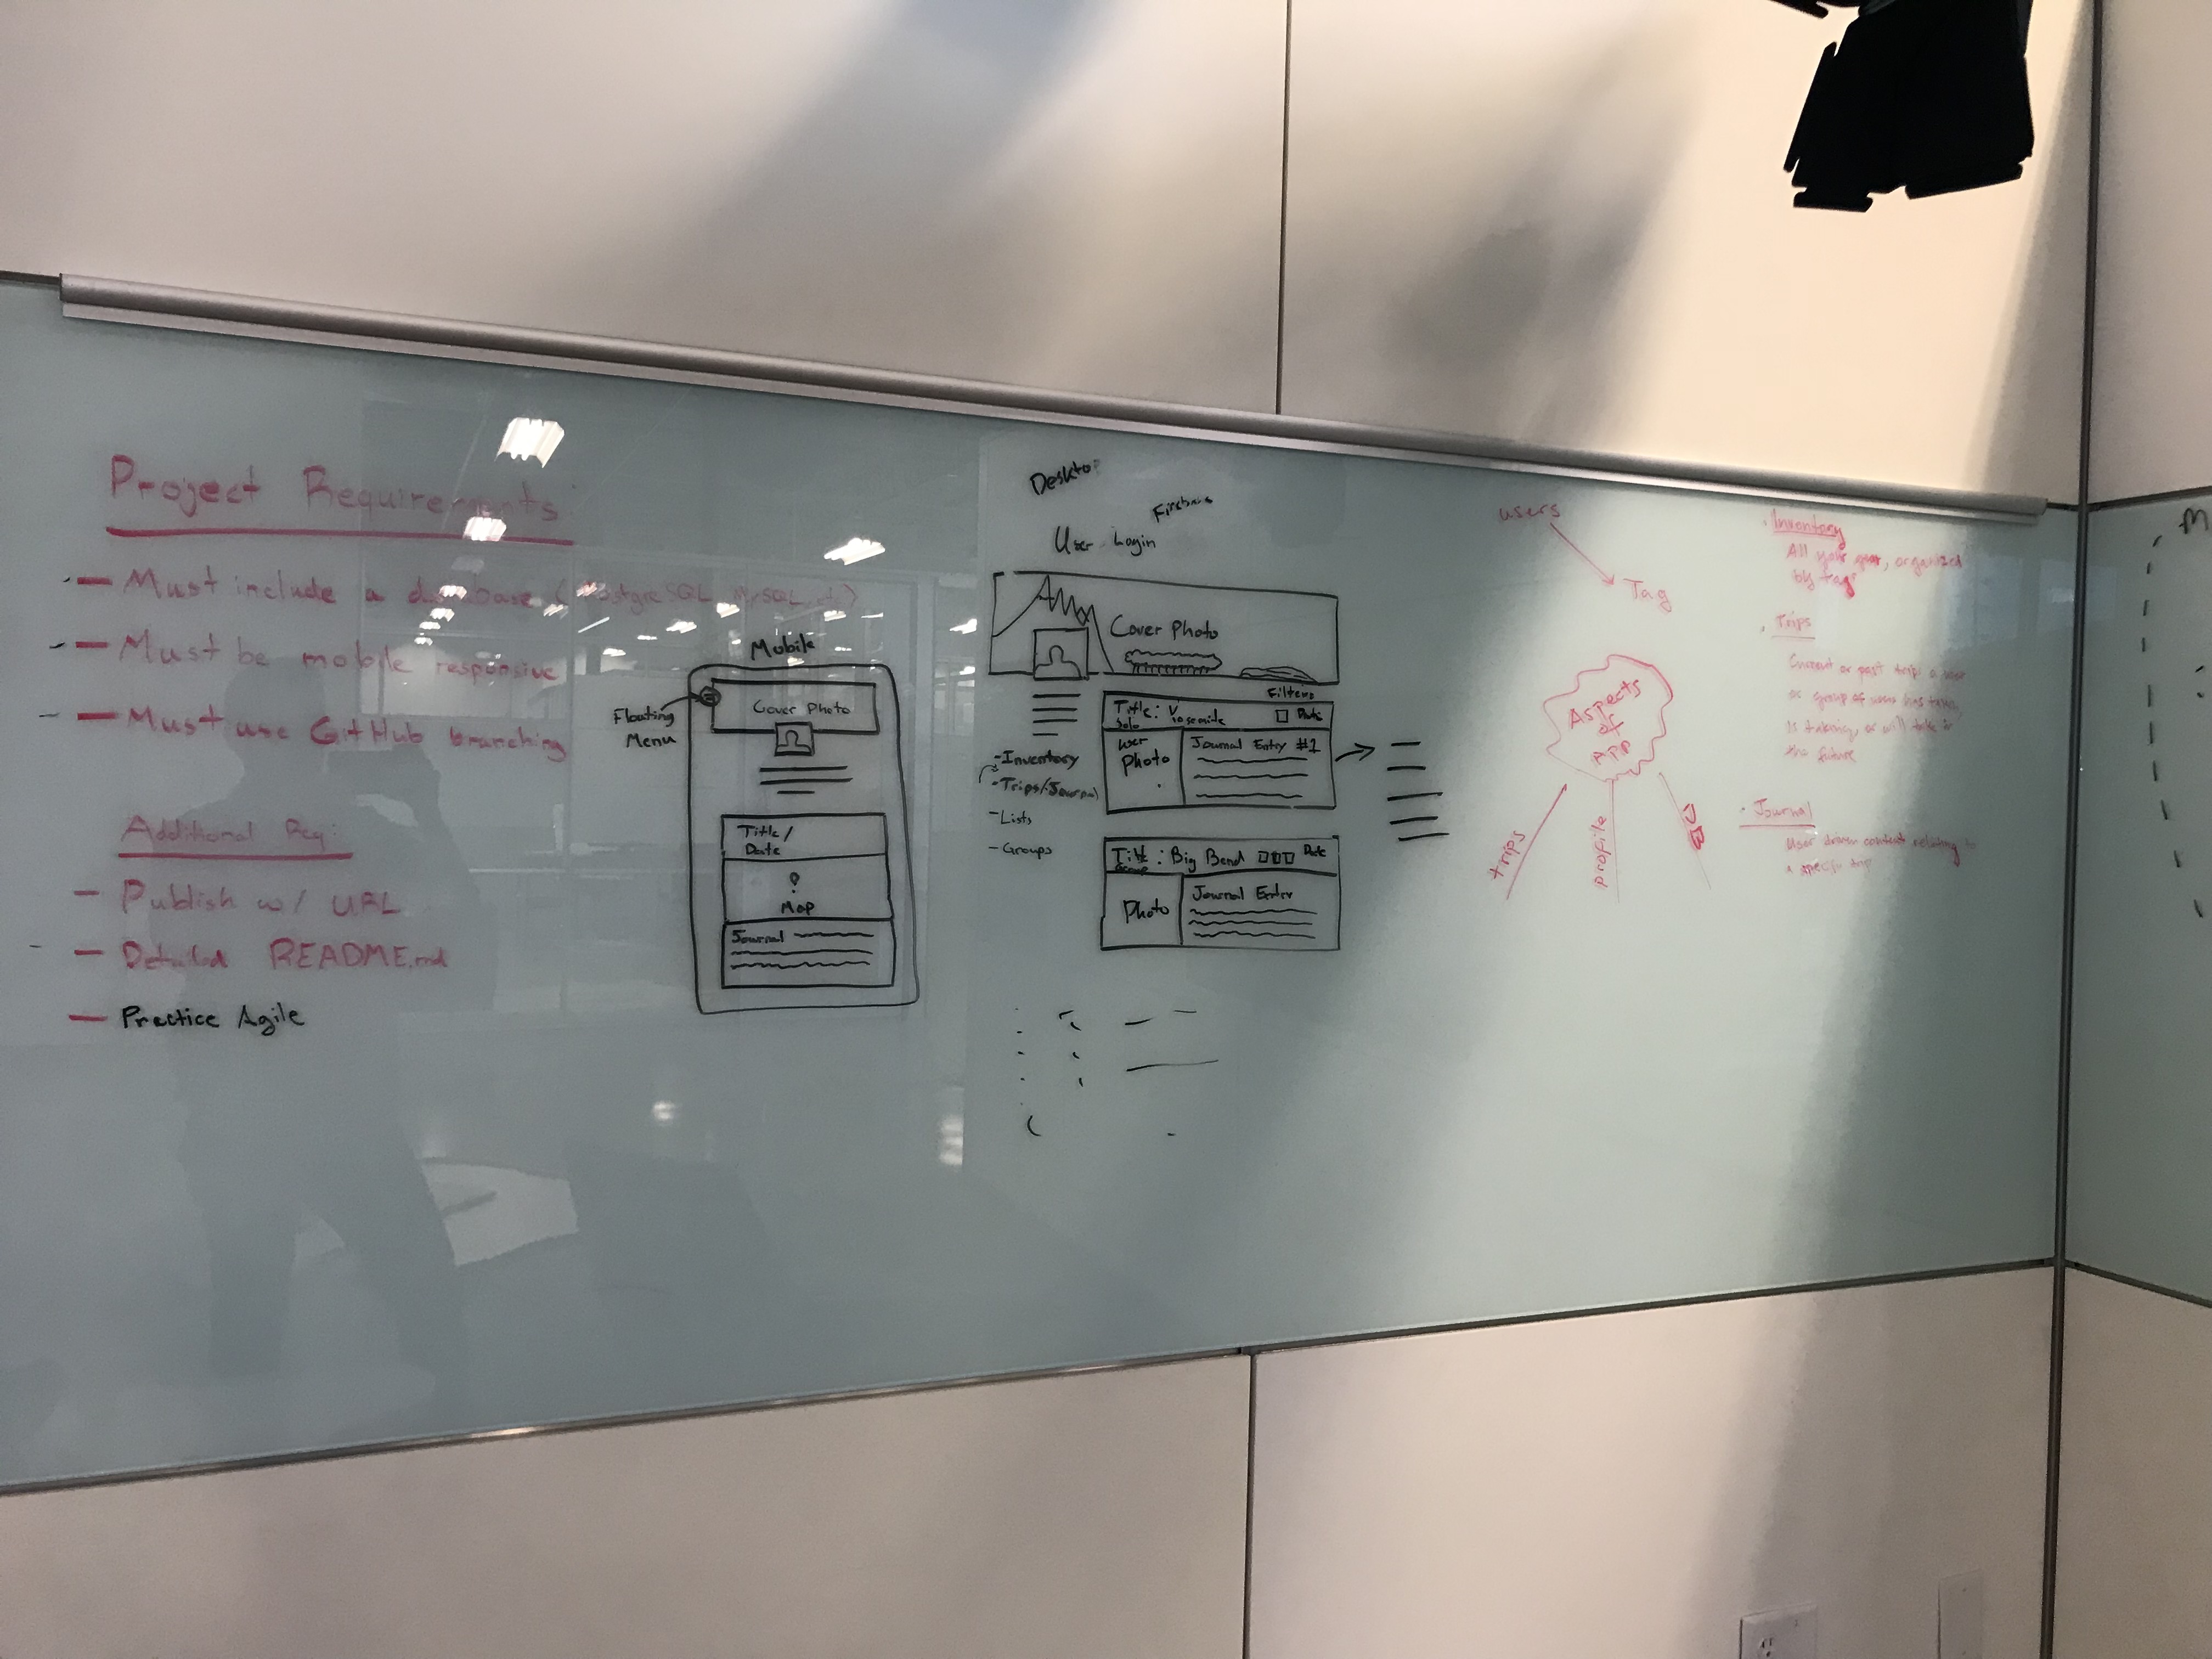 Project Requirements
- Must include a database (PostgreSQL, MySQL, etc)
- Must be mobile responsive
- Must use GitHub branching
Additional Req:
- Publish w/ URL
- Detailed README.md
- Practice Agile
Mobile
Floating
Menu
Cover Photo
Title/
Date
Map
Journal
Desktop
Firebase
User Login
Cover Photo
Filters
- Inventory
- Trips/Journal
- Lists
- Groups
Title: Yosemite
Solo
Date
User
Photo
Journal Entry #1
Title: Big Bend
Group
Date
Photo
Journal Entry
users
Tag
Aspects
of
App
trips
profile
DB
· Inventory
All your gear, organized
by tag
· Trips
Current or past trips a user
or group of users has taken,
is taking, or will take in
the future
· Journal
User driven content relating to
a specific trip
M